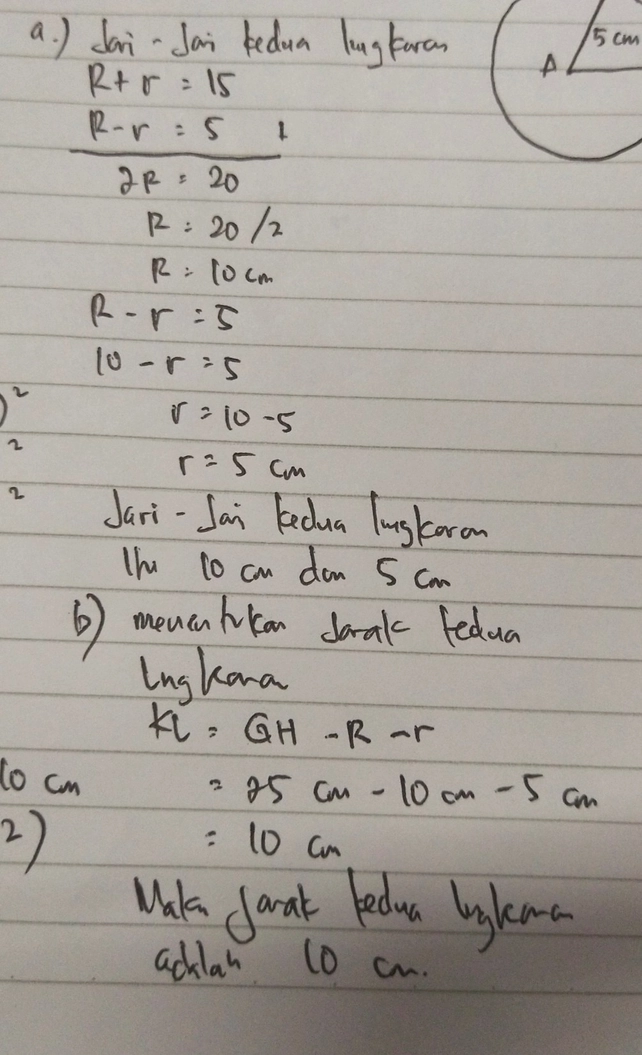 a.) Jari - Jari kedua lingkaran
5 cm
A
R + r = 15
R - r = 5
2R = 20
R = 20 / 2
R = 10 cm
R - r = 5
10 - r = 5
)²
r = 10 - 5
2
r = 5 cm
2
Jari - Jari kedua lingkaran
itu 10 cm dan 5 cm
b) menentukan Jarak kedua
lingkaran
KL = GH - R - r
10 cm
= 25 cm - 10 cm - 5 cm
2)
= 10 cm
Maka Jarak kedua lingkaran
adalah 10 cm.